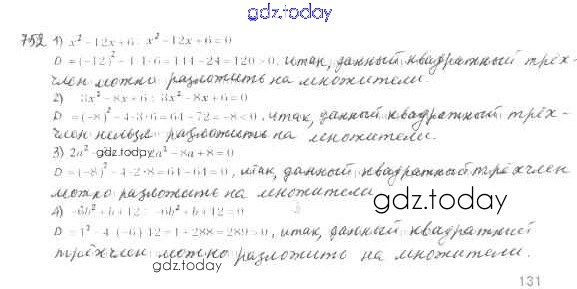 gdz.today
752 1) x² - 12x + 6 : x² - 12x + 6 = 0
D = (-12)² - 4·1·6 = 144 - 24 = 120 > 0, итак, данный квадратный трёх-
член можно разложить на множители.
2) 3x² - 8x + 6 : 3x² - 8x + 6 = 0
D = (-8)² - 4·3·6 = 64 - 72 = -8 < 0, итак, данный квадратный трёх-
член нельзя разложить на множители.
3) 2a² - 2a² - 8a + 8 = 0
gdz.today
D = (-8)² - 4·2·8 = 64 - 64 = 0, итак, данный квадратный трёхчлен
можно разложить на множители
gdz.today
4) -6b² + b + 12 : -6b² + b + 12 = 0
D = 1² - 4·(-6)·12 = 1 + 288 = 289 > 0, итак, данный квадратный
трёхчлен можно разложить на множители.
gdz.today
131